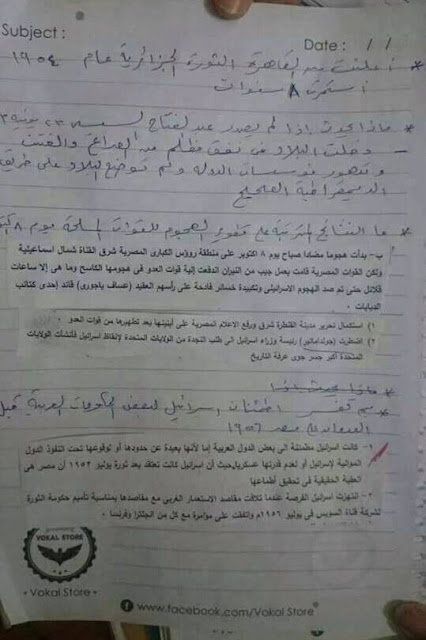 Subject :
Date : / /
* أعلنت من القاهرة الثورة الجزائرية عام ١٩٥٤
استمرت ٨ سنوات
* ماذا يحدث إذا لم يصدر عبد الفتاح السيسى ٣ يونية
- دخلت البلاد فى نفق مظلم من الصراع والفتن
وتدهور مؤسسات الدولة ولم توضع البلاد على طريق
الديمقراطية الصحيح
* ما النتائج المترتبة على الهجوم للقوات المسلحة يوم ٨
ب- بدأت هجوما مضادا صباح يوم ٨ أكتوبر على منطقة رؤوس الكبارى المصرية شرق القناة شمال اسماعيلية
ولكن القوات المصرية قامت بعمل جيب من النيران اندفعت إلية قوات العدو فى هجومها الكاسح وما هى إلا ساعات
قلائل حتى تم صد الهجوم الاسرائيلى وتكبيدة خسائر فادحة على رأسهم العقيد (عساف ياجورى) قائد (احدى كتائب
الدبابات .
١) استكمال تحرير مدينة القنطرة شرق ورفع الاعلام المصرية على أبنيتها بعد تطهيرها من قوات العدو .
٢) اضطرت (جولدامائير) رئيسة وزراء اسرائيل الى طلب النجدة من الولايات المتحدة لإنقاذ اسرائيل فأنشأت الولايات
المتحدة أكبر جسر جوى عرفة التاريخ
* ماذا يحدث إذا
* بم تفسر اطمئنان اسرائيل لبعض الحكومات العربية قبل
العدوان على مصر ١٩٥٦
١- كانت اسرائيل مطمئنة الى بعض الدول العربية إما لأنها بعيدة عن حدودها أو لوقوعها تحت النفوذ الدول
الموالية لإسرائيل أو لعدم قدرتها عسكريا,حيث أن اسرائيل كانت تعتقد بعد ثورة يوليو ١٩٥٢ أن مصر هى
العقبة الحقيقية فى تحقيق أطماعها
٢- انتهزت اسرائيل الفرصة عندما تلاقت مقاصد الاستعمار الغربى مع مقاصدها بمناسبة تأميم حكومة الثورة
لشركة قناة السويس فى يوليو ١٩٥٦م واتفقت على مؤامرة مع كل من انجلترا وفرنسا .
VOKAL STORE
• Vokal Store •
www.facebook.com/Vokal Store